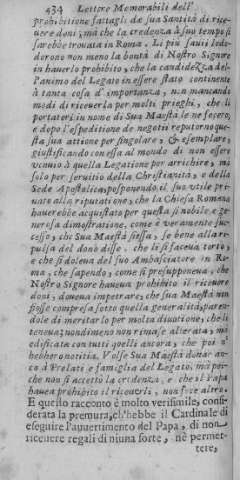 434 Lettere Memorabili dell'
prohibitione fattagli de sua Santità di rice-
uere doni; ma che la credenza à suo tempo si
sarebbe trouata in Roma. Li più sauij lode-
derono non meno la bontà di Nostro Signore
in hauerlo prohibito, che la candidezza del-
l'animo del Legato in essere stato continente
à tanta cosa d'importanza, non mancando
modi di riceuerla per molti prieghi, che li
portateri in nome di Sua Maestà le ne fecero,
e dopo l'espeditione de negotij reputorno que-
sta sua attione per singolare, & esemplare,
giustificando con essa al mondo di non essere
venuto à quella Legatione per arrichire, mà
solo per seruitio della Christianità, e della
Sede Apostolica, posponendo il suo vtile pri-
uato alla riputatione, che la Chiesa Romana
hauerebbe acquistato per questa sì nobile, e ge-
nerosa dimostratione, come è veramente suc-
cesso, chi Sua Maestà stessa, se bene alla re-
pulsa del dono disse, che li si faceua torto,
e che si doleua del suo Ambasciatore in Ro-
ma, che sapendo, come si presupponeua, che
Nostro Signore haueua prohibito il riceuere
doni, doueua impetrare, che sua Maestà non
fosse compresa sotto quella generalità, paren-
dole di meritarlo per molta diuotione, che li
teneua; nondimeno non rimase alterata, mà
edificata con tutti quelli ancora, che poi n'
hebbero notitia. Volse Sua Maestà donar an-
co à Prelati e famiglia del Legato, mà per-
che non si accettò la credenza, e che il Papa
hauea prohibito il riceuerli, non fece altro.
E questo racconto è molto verisimile, consi-
derata la premura, ch'hebbe il Cardinale di
eseguire l'auuertimento del Papa, di non
riceuere regali di niuna sorte, nè permet-
tere,